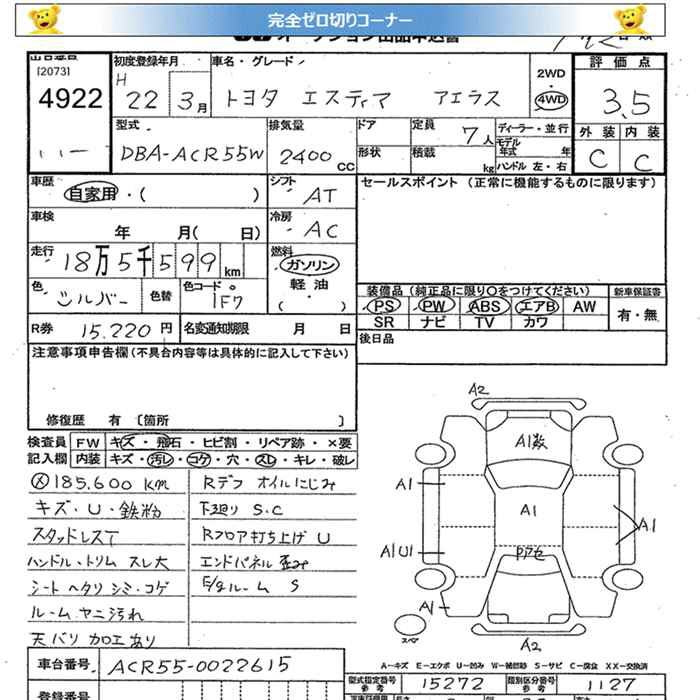 完全ゼロ切りコーナー
[2073]
4922
初度登録年月
H 22 3月
車名・グレード
トヨタ エスティマ アエラス
2WD
4WD
評価点
3.5
外装 内装
C C
型式
DBA-ACR55W
排気量
2400 CC
ドア
形状
定員
7人
積載
kg
ディーラー・並行
モデル年式 年
ハンドル 左・右
車歴
自家用・( )
シフト
AT
車検
年 月( 日)
冷房
AC
走行
18万5千599km
燃料
ガソリン
軽油
( )
色
シルバー
色替
色コード
1F7
R券
15.220円
名変通知期限 月 日
セールスポイント (正常に機能するものに限ります)
装備品 (純正品に限り○をつけてください)
新車保証書
PS PW ABS エアB AW
SR ナビ TV カワ
有・無
後日品
注意事項申告欄(不具合内容等は具体的に記入して下さい)
修復歴 有 〔箇所 〕
検査員記入欄
FW キズ・飛石・ヒビ割・リペア跡・×要
内装 キズ・汚レ・コゲ・穴・スレ・キレ・破レ
185.600 KM
キズ・U・鉄粉
スタッドレスT
ハンドル・トリム スレ大
シート ヘタリ シミ・コゲ
ルーム ヤニ汚れ
天バリ 加工あり
Rデフ オイルにじみ
下廻り S.C
Rフロア打ち上げ U
エンドパネル 歪み
E/gルーム S
A2
A1数
A1
A1
A1
A1U1
Pア色
A1
スペア
A2
A-キズ E-エクボ U-凹み W-補修跡 S-サビ C-腐食 X X-交換済
車台番号
ACR55-0022615
型式指定番号
参考
15272
類別区分番号
参考
1127
登録番号